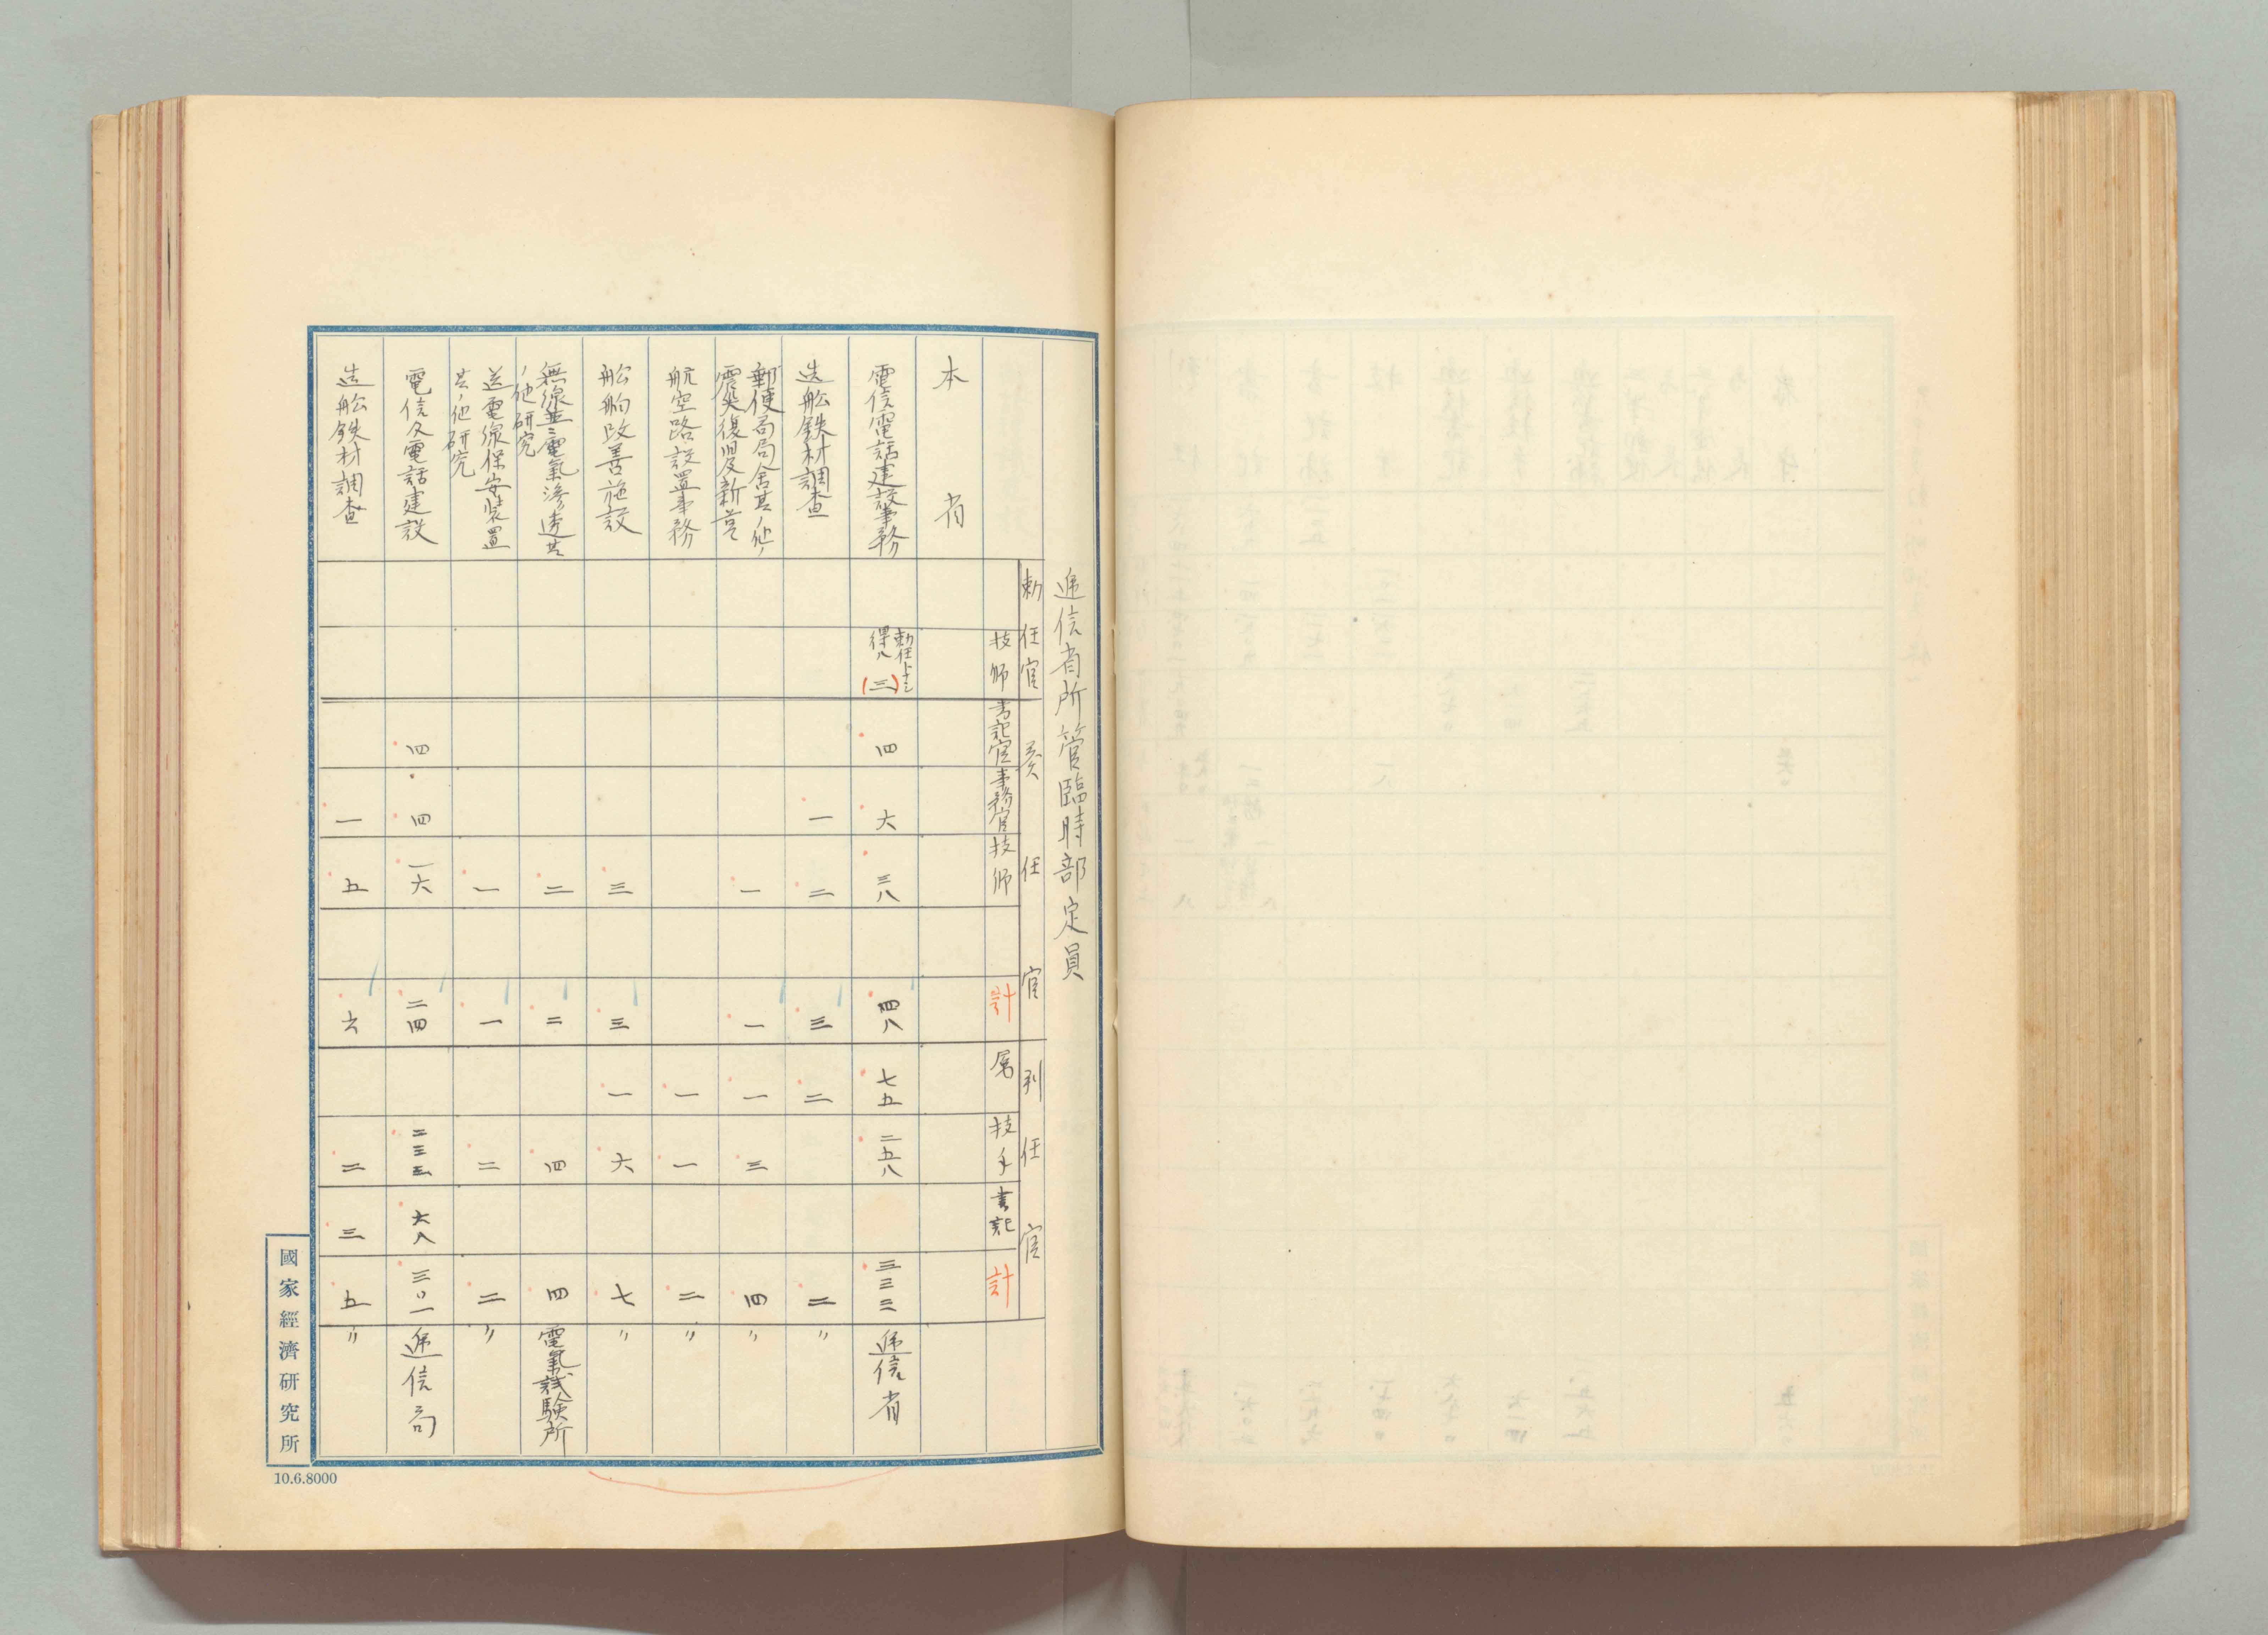 逓信省所管臨時部定員
勅任官
奏任官
判任官
技師
書記官
事務官
技師
計
属
技手
書記
計
本省
電信電話建設事務
勅任トナシ
得ハ
(三)
四
六
三八
四八
七五
二五八
三三三
逓信省
造船鉄材調査
一
二
三
二
二
〃
郵便局局舎其ノ他ノ
震災復旧及新営
一
一
一
三
四
〃
航空路設置事務
一
一
二
〃
船舶改善施設
三
三
一
六
七
〃
無線並ニ電氣滲透其
ノ他研究
二
二
四
四
電氣試験所
送電線保安装置
其ノ他研究
一
一
二
二
〃
電信及電話建設
四
四
一六
二四
二三三
六八
三〇一
逓信局
造船鉄材調査
一
五
六
二
三
五
〃
國家經濟研究所
10.6.8000